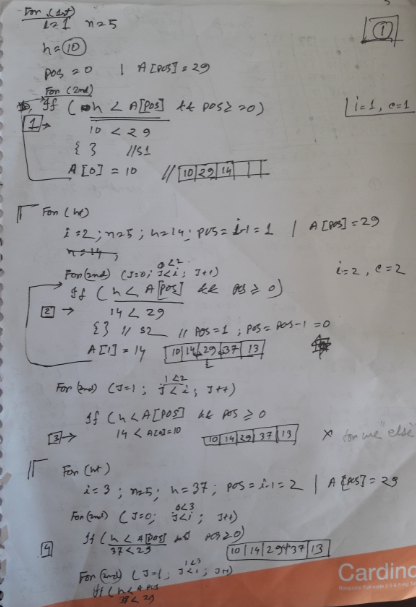 For (1st)
i=1 n=5
①
h=10
pos = 0 | A[pos] = 29
For (2nd)
If (h < A[pos] && pos >= 0)
i=1, c=1
1 →
10 < 29
{ } //s1
A[0] = 10 // 10 29 14
For (1st)
i=2; n=5; h=14; pos=i-1=1 | A[pos]=29
n=14,
0<2
For(2nd) (J=0; J<i; J++)
i=2, c=2
If (h<A[pos] && pos ≥ 0)
2 →
14 < 29
{ } // s2 // pos=1; pos=pos-1=0
A[1] = 14 10 14 29 37 13
1<2
For (2nd) (J=1; J<i; J++)
If (h<A[pos] && pos ≥ 0
3 →
14 < A[0]=10 10 14 29 37 13 × else
For (1st)
i=3; n=5; h=37; pos=i-1=2 | A[pos]=29
0<3
For (2nd) (J=0; J<i; J++)
If (h<A[pos] && pos≥0)
4
37<29 10 14 29 37 13
1<3
For (2nd) (J=1, J<i; J++)
If (h<A pos
37 < 29
Cardino